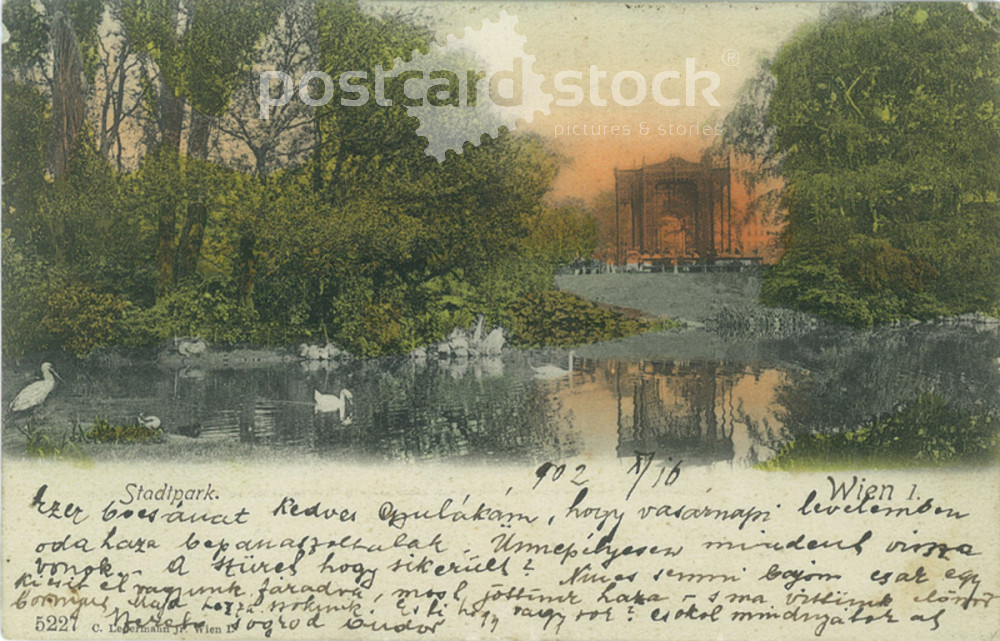 postcard stock®
pictures & stories
902 XI/16
Stadtpark. Wien I.
Ezer bocsánat kedves Gyulákám, hogy vasárnapi levelemben
oda haza bepanaszoltalak. Ünnepélyesen mindent vissza
vonok. A szüret hogy sikerült? Nincs semmi bajom csak egy
kicsit el vagyunk fáradva, most jöttünk haza
majd hozzá szokunk. Esti hogy vagy csókol mindnyájatokat
szerető sógorod
5227 C. Ledermann jr. Wien I.